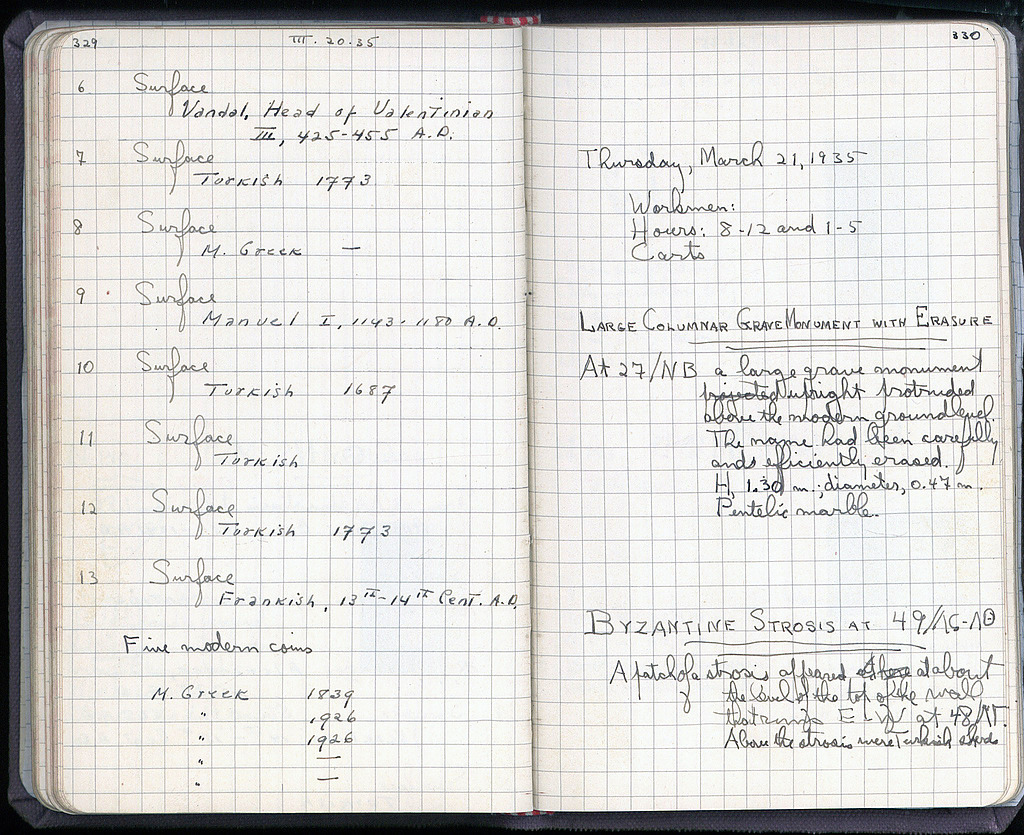 329
III. 20.35
6 Surface
Vandal, Head of Valentinian
III, 425-455 A.D.
7 Surface
Turkish 1773
8 Surface
M. Greek —
9 Surface
Manuel I, 1143-1180 A.D.
10 Surface
Turkish 1687
11 Surface
Turkish
12 Surface
Turkish 1773
13 Surface
Frankish, 13th-14th Cent. A.D.
Five modern coins
M. Greek 1839
" 1926
" 1926
" —
" —
330
Thursday, March 21, 1935
Workmen:
Hours: 8-12 and 1-5
Carts
LARGE COLUMNAR GRAVE MONUMENT WITH ERASURE
At 27/NB a large grave monument
projected upright protruded
above the modern ground level.
The name had been carefully
and efficiently erased.
H, 1.30 m.; diameter, 0.47 m.
Pentelic marble.
BYZANTINE STROSIS AT 49/ΛΣ-ΛΘ
A patch of a strosis appeared at about
the level of the top of the wall
that runs E-W at 48/
Above the strosis were Turkish sherds